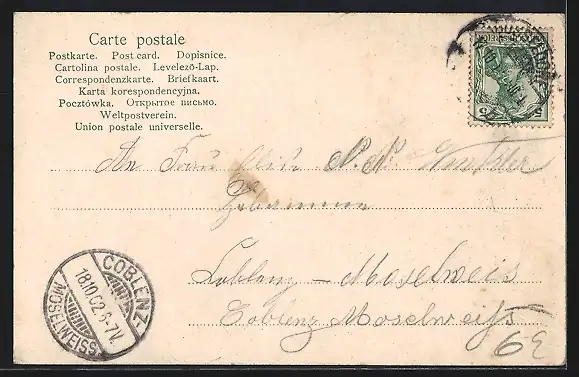 Carte postale
Postkarte. Post card. Dopisnice.
Cartolina postale. Levelező-Lap.
Correspondenzkarte. Briefkaart.
Karta korespondencyjna.
Pocztówka. Открытое письмо.
Weltpostverein.
Union postale universelle.
An Frau N. N.
Hebamme
Coblenz - Moselweis
Coblenz Moselweiß
COBLENZ
18.10.02. 6-7V.
MOSELWEISS
5
6E